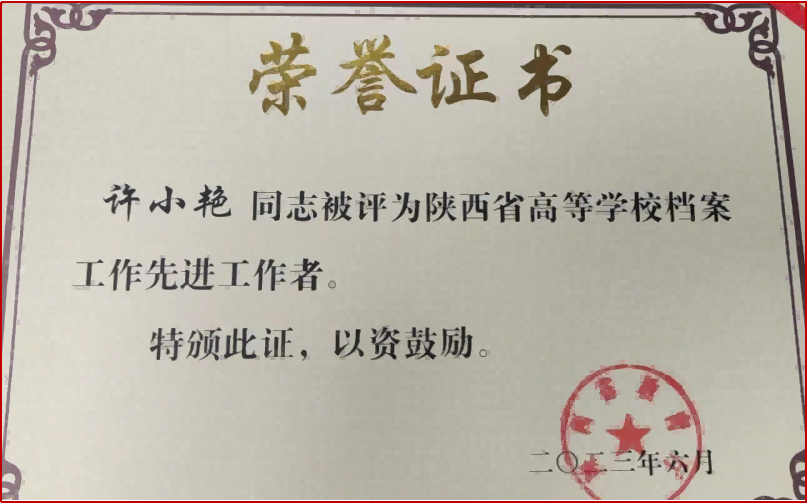 荣誉证书
许小艳 同志被评为陕西省高等学校档案
工作先进工作者。
特颁此证，以资鼓励。
二〇二三年六月